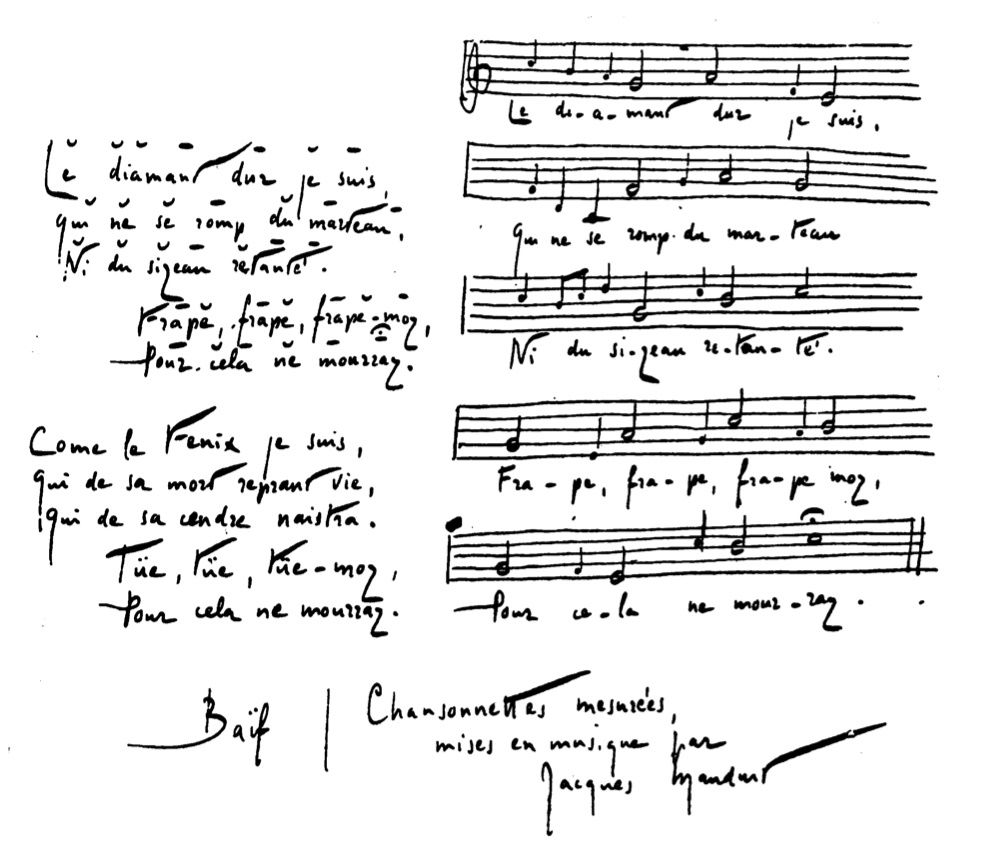 Le diamant dur je suis,
qui ne se romp du marteau,
Ni du sizeau retanté.
Frape, frape, frape-moy,
Pour cela ne mourray.
Come le Fenix je suis,
qui de sa mort reprant vie,
qui de sa cendre naistra.
Tüe, tüe, tüe-moy,
Pour cela ne mourray.
Le di-a-mant dur je suis,
Qui ne se romp du mar-teau
Ni du si-zeau re-tan-té.
Fra-pe, fra-pe, fra-pe moy,
Pour ce-la ne mour-ray.
Baïf
Chansonnettes mesurées,
mises en musique par
Jacques Mauduit